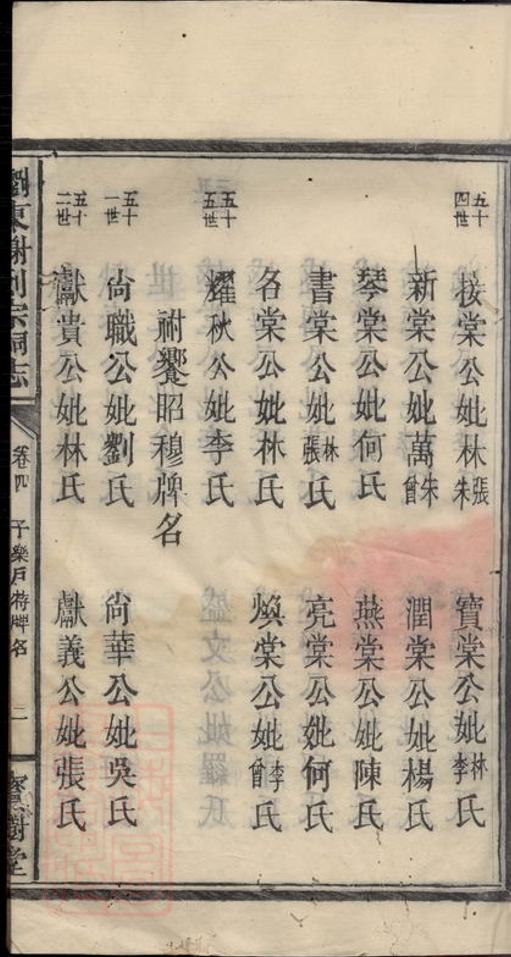 五十四世
接棠公妣林張朱氏
寶棠公妣李林氏
新棠公妣萬曾朱氏
潤棠公妣楊氏
琴棠公妣何氏
燕棠公妣陳氏
書棠公妣張林氏
亮棠公妣何氏
名棠公妣林氏
煥棠公妣曾李氏
五十五世
耀秋公妣李氏
祔饗昭穆牌名
五十一世
尙職公妣劉氏
尙華公妣吳氏
五十二世
獻貴公妣林氏
獻義公妣張氏
瀏東謝列宗祠志
卷四
子樂戶特牌名
二
寶樹堂